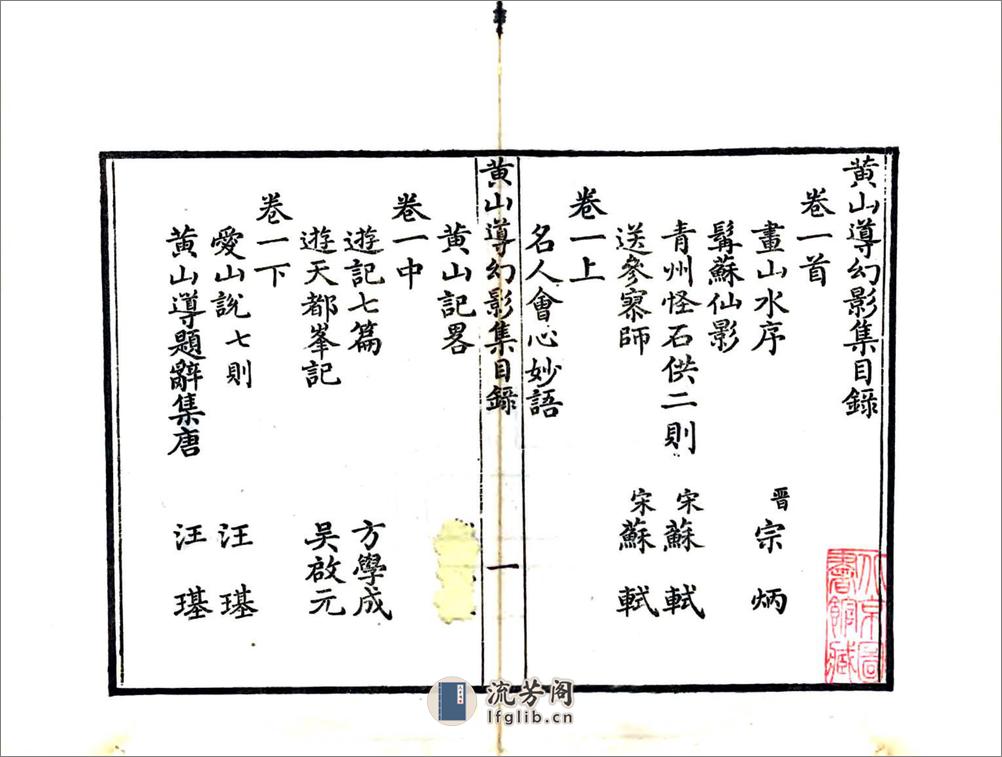 黄山導幻影集目錄
卷一首
畫山水序 晋宗炳
髯蘇仙影
青州怪石供二則 宋蘇軾
送參寥師 宋蘇軾
卷一上
名人會心妙語
黄山導幻影集目錄 一
黄山記畧
卷一中
遊記七篇 方學成
遊天都峯記 吴啟元
卷一下
愛山説七則 汪璂
黄山導題辭集唐 汪璂
北京圖書館藏
流芳阁
lfglib.cn